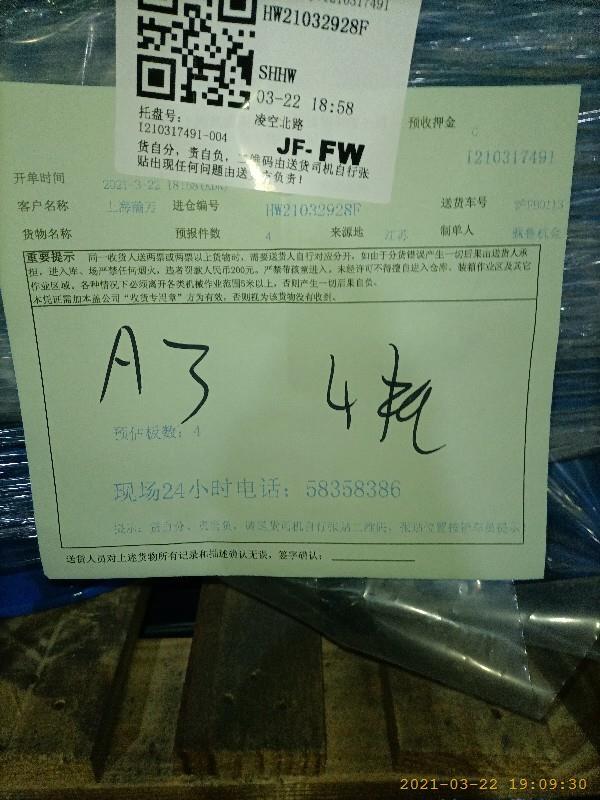 I210317491
HW21032928F
SHHW
03-22 18:58
托盘号:
I210317491-004
凌空北路
JF-FW
货自分，责自负，二维码由送货司机自行张
贴出现任何问题由送货方负责！
预收押金
I210317491
开单时间
客户名称 进仓编号 HW21032928F 送货车号
货物名称 预报件数 4 来源地 江苏 制单人
重要提示 同一收货人送两票或两票以上货物时，需要送货人自行对应分开，如由于分货错误产生一切后果由送货人承
担，进入库、场严禁任何烟火，违者罚款人民币200元，严禁带孩童进入，未经许可不得擅自进入仓库、装箱作业区及其它
作业区域，各种情况下必须离开各类机械作业范围5米以上，否则产生一切后果自负。
本凭证需加本盖公司“收货专用章”方为有效，否则视为该货物没有收到。
A3 4托
预估板数：4
现场24小时电话：58358386
提示：货自分，责自负，请送货司机自行张贴二维码，张贴位置按
送货人员对上述货物所有记录和描述确认无误，签字确认：
2021-03-22 19:09:30